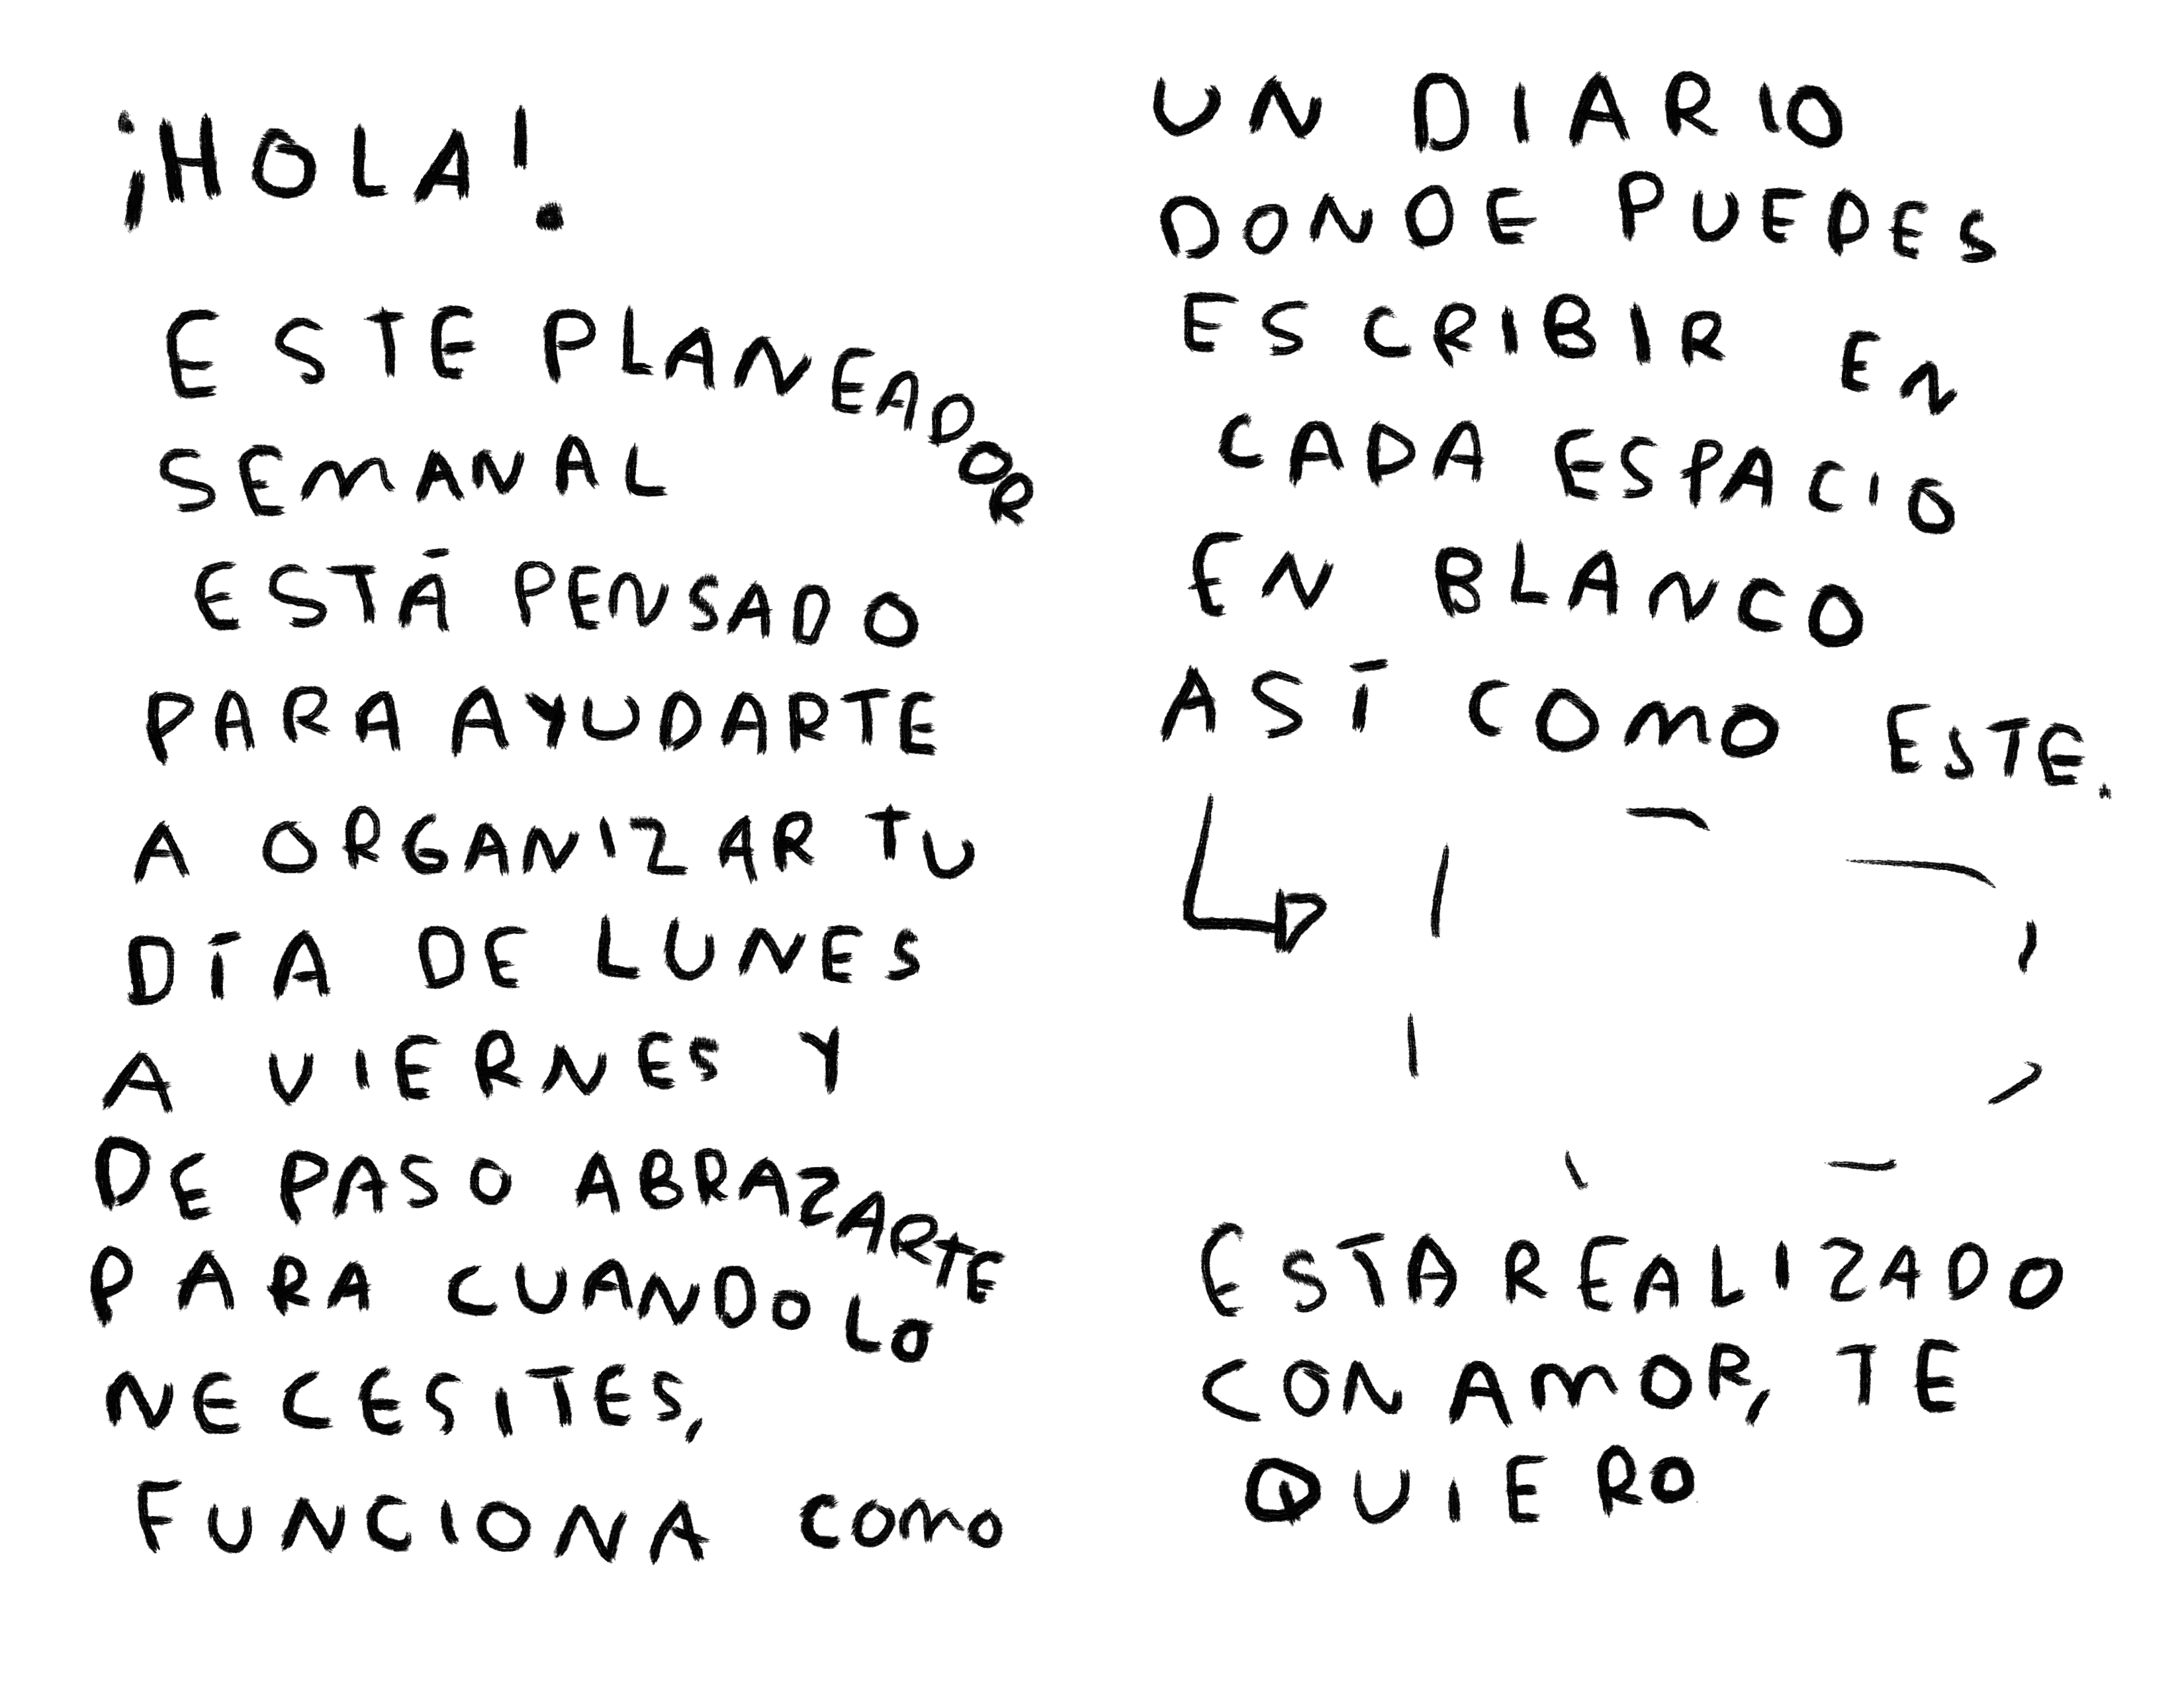 ¡HOLA!
ESTE PLANEADOR
SEMANAL
ESTÁ PENSADO
PARA AYUDARTE
A ORGANIZAR TU
DÍA DE LUNES
A VIERNES Y
DE PASO ABRAZARTE
PARA CUANDO LO
NECESITES,
FUNCIONA COMO
UN DIARIO
DONDE PUEDES
ESCRIBIR EN
CADA ESPACIO
EN BLANCO
ASÍ COMO ESTE.
ESTA REALIZADO
CON AMOR, TE
QUIERO